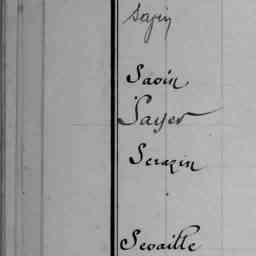 Sajin
Savin
Sayer
Serazin
Sevaille